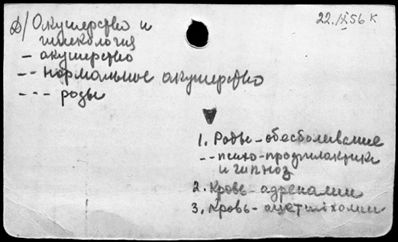 Д/ Акушерство и
гинекология
— акушерство
-- нормальное акушерство
--- роды
22.IX.56 К
1. Роды - обезболивание
-- психо-профилактика
и гипноз
2. Кровь - адреналин
3. Кровь - ацетилхолин